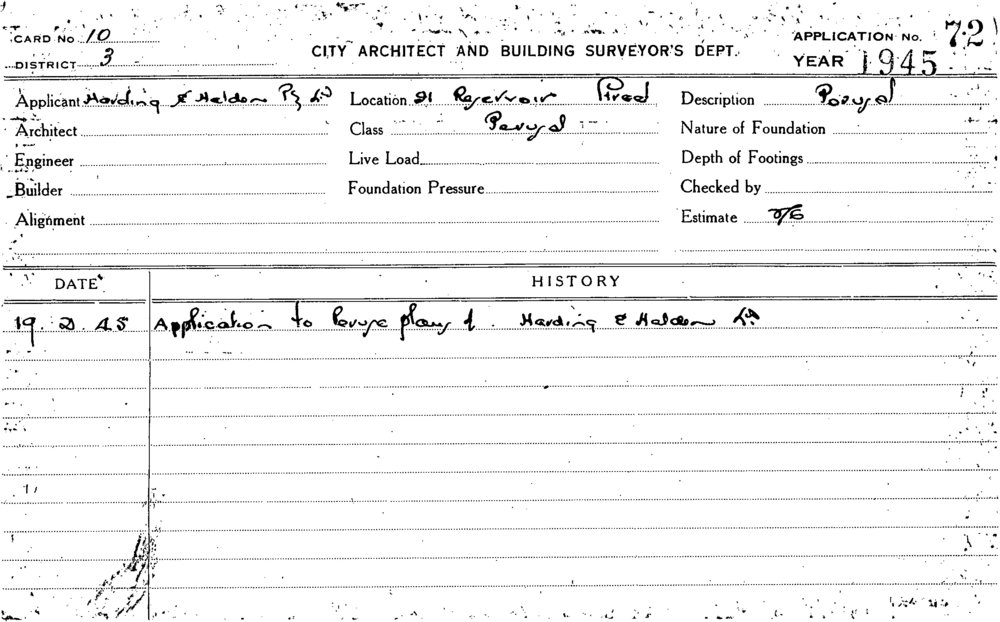 CARD No 10
DISTRICT 3
CITY ARCHITECT AND BUILDING SURVEYOR'S DEPT.
APPLICATION No. 72
YEAR 1945
Applicant Harding & Halden Py Ltd Location 21 Reservoir Street Description Perusal
Architect Class Perusal Nature of Foundation
Engineer Live Load Depth of Footings
Builder Foundation Pressure Checked by
Alignment Estimate 2/6
DATE HISTORY
19. 2. 45 Application to Peruse plans of Harding & Halden Ltd